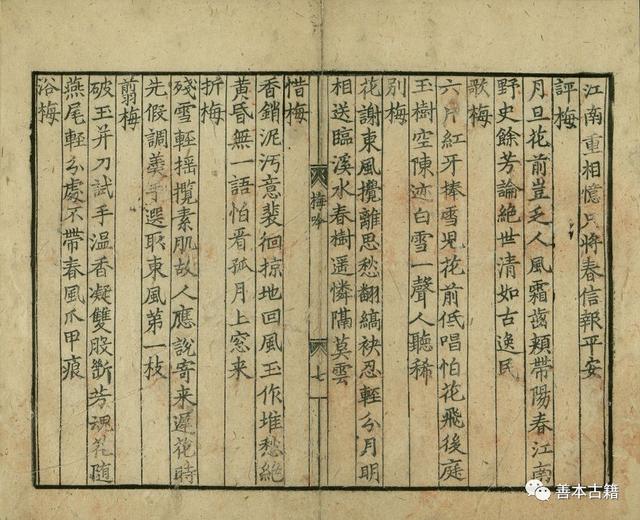 江南重相憶只將春信報平安
評梅
月旦花前豈乏人風霜齒頰帶陽春江南
野史餘芳論絕世清如古逸民
歌梅
六片紅牙捧雪児花前低唱怕花飛後庭
玉樹空陳迹白雪一聲人聽稀
別梅
花謝東風攪離思愁翻縞袂忍輕分月明
相送臨溪水春樹遥憐隔莫雲
梅吟
七
惜梅
香銷泥汚意裴徊掠地回風玉作堆愁絕
黃昏無一語怕看孤月上窓来
折梅
殘雪輕揺攬素肌故人應說寄来遲花時
先假調羹手選取東風第一枝
翦梅
破玉并刀試手溫香凝雙股斷芳魂花随
燕尾輕分處不帶春風爪甲痕
浴梅
善本古籍